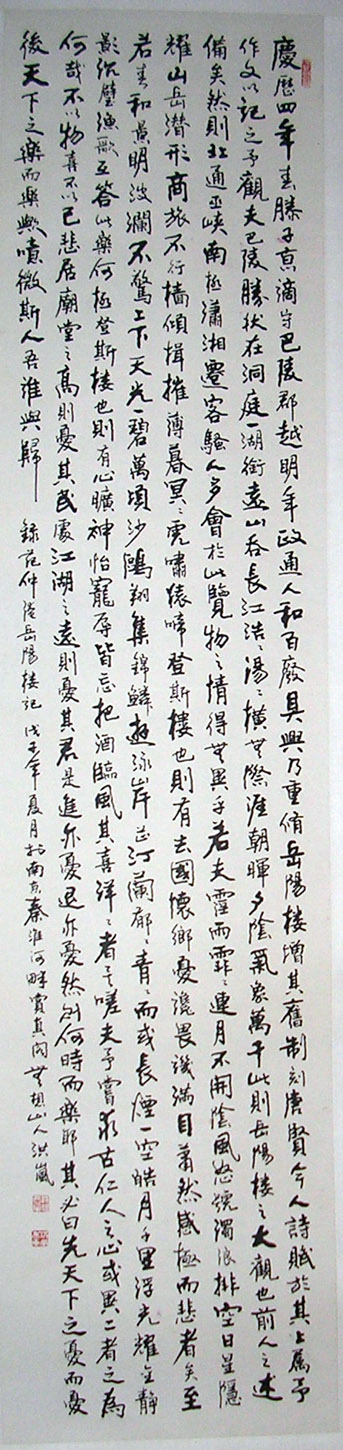 慶歷四年春滕子京謫守巴陵郡越明年政通人和百廢具興乃重脩岳陽樓增其舊制刻唐賢今人詩賦於其上屬予
作文以記之予觀夫巴陵勝狀在洞庭一湖銜遠山吞長江浩〻湯〻橫無際涯朝暉夕陰氣象萬千此則岳陽樓之大觀也前人之述
備矣然則北通巫峽南極瀟湘遷客騷人多會於此覽物之情得無異乎若夫霪雨霏〻連月不開陰風怒號濁浪排空日星隱
耀山岳潛形商旅不行檣傾楫摧薄暮冥〻虎嘯猿啼登斯樓也則有去國懷鄉憂讒畏譏滿目蕭然感極而悲者矣至
若春和景明波瀾不驚上下天光一碧萬頃沙鷗翔集錦鱗游泳岸芷汀蘭郁〻青〻而或長煙一空皓月千里浮光耀金靜
影沉璧漁歌互答此樂何極登斯樓也則有心曠神怡寵辱皆忘把酒臨風其喜洋〻者矣嗟夫予嘗求古仁人之心或異二者之為
何哉不以物喜不以己悲居廟堂之高則憂其民處江湖之遠則憂其君是進亦憂退亦憂然則何時而樂耶其必曰先天下之憂而憂
後天下之樂而樂歟噫微斯人吾誰與歸 錄范仲淹岳陽樓記 戊子年夏月於南京秦淮河畔賞真閣無想山人洪嵐